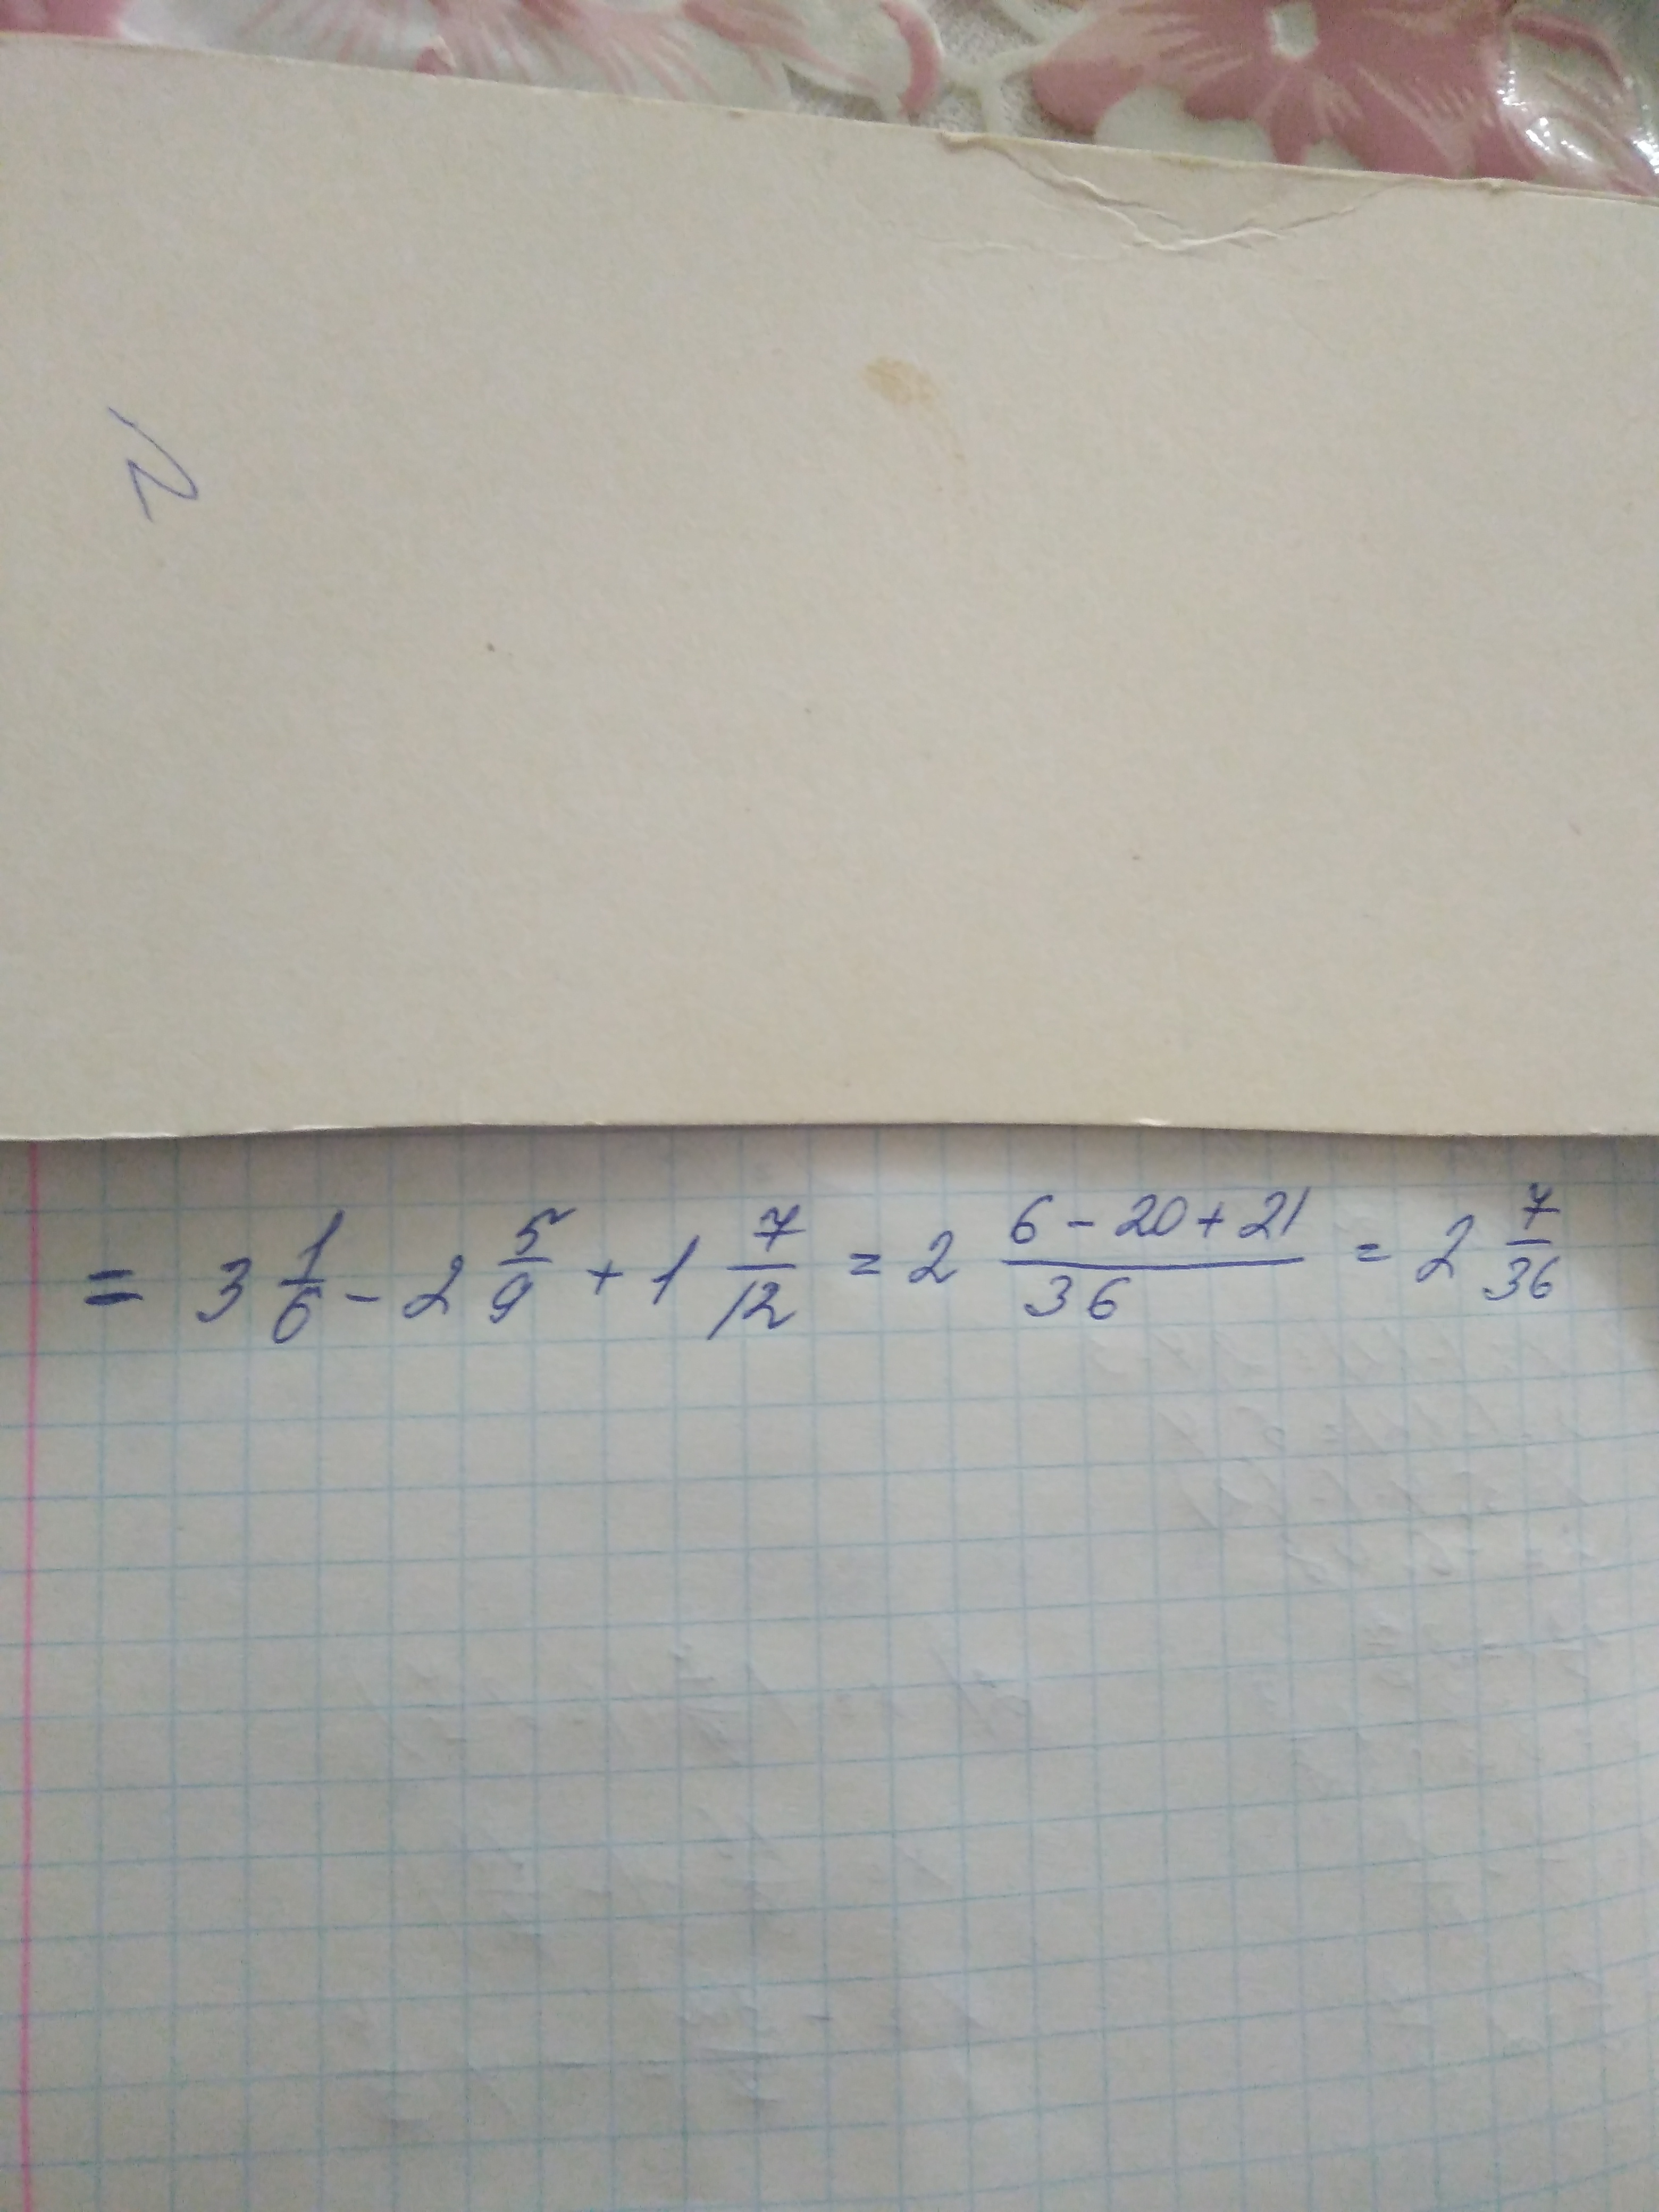 = 3 1/6 - 2 5/9 + 1 7/12 = 2 (6 - 20 + 21)/36 = 2 7/36